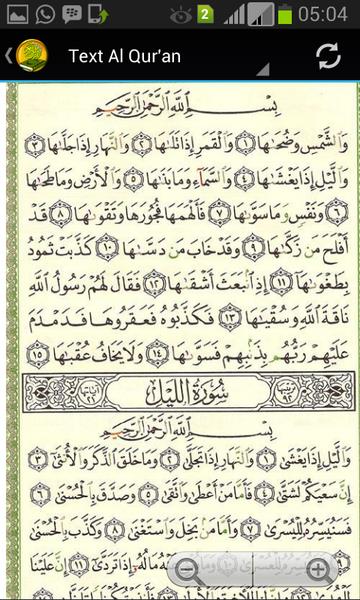 2 05:04
Text Al Qur'an
بِسْمِ اللَّهِ الرَّحْمَٰنِ الرَّحِيمِ
وَالشَّمْسِ وَضُحَىٰهَا ۝١ وَالْقَمَرِ إِذَا تَلَىٰهَا ۝٢ وَالنَّهَارِ إِذَا جَلَّىٰهَا ۝٣
وَالَّيْلِ إِذَا يَغْشَىٰهَا ۝٤ وَالسَّمَاءِ وَمَا بَنَىٰهَا ۝٥ وَالْأَرْضِ وَمَا طَحَىٰهَا
۝٦ وَنَفْسٍ وَمَا سَوَّىٰهَا ۝٧ فَأَلْهَمَهَا فُجُورَهَا وَتَقْوَىٰهَا ۝٨ قَدْ
أَفْلَحَ مَن زَكَّىٰهَا ۝٩ وَقَدْ خَابَ مَن دَسَّىٰهَا ۝١٠ كَذَّبَتْ ثَمُودُ
بِطَغْوَىٰهَا ۝١١ إِذِ انبَعَثَ أَشْقَىٰهَا ۝١٢ فَقَالَ لَهُمْ رَسُولُ اللَّهِ
نَاقَةَ اللَّهِ وَسُقْيَٰهَا ۝١٣ فَكَذَّبُوهُ فَعَقَرُوهَا فَدَمْدَمَ
عَلَيْهِمْ رَبُّهُم بِذَنبِهِمْ فَسَوَّىٰهَا ۝١٤ وَلَا يَخَافُ عُقْبَٰهَا ۝١٥
ترتيبها ٩٢ سُورَةُ اللَّيْلِ آياتها ٢١
بِسْمِ اللَّهِ الرَّحْمَٰنِ الرَّحِيمِ
وَالَّيْلِ إِذَا يَغْشَىٰ ۝١ وَالنَّهَارِ إِذَا تَجَلَّىٰ ۝٢ وَمَا خَلَقَ الذَّكَرَ وَالْأُنثَىٰ ۝٣
إِنَّ سَعْيَكُمْ لَشَتَّىٰ ۝٤ فَأَمَّا مَنْ أَعْطَىٰ وَاتَّقَىٰ ۝٥ وَصَدَّقَ بِالْحُسْنَىٰ ۝٦
فَسَنُيَسِّرُهُ لِلْيُسْرَىٰ ۝٧ وَأَمَّا مَن بَخِلَ وَاسْتَغْنَىٰ ۝٨ وَكَذَّبَ بِالْحُسْنَىٰ
۝٩ فَسَنُيَسِّرُهُ لِلْعُسْرَىٰ ۝١٠ وَمَا يُغْنِي عَنْهُ مَالُهُ إِذَا تَرَدَّىٰ ۝١١ إِنَّ عَلَيْنَا